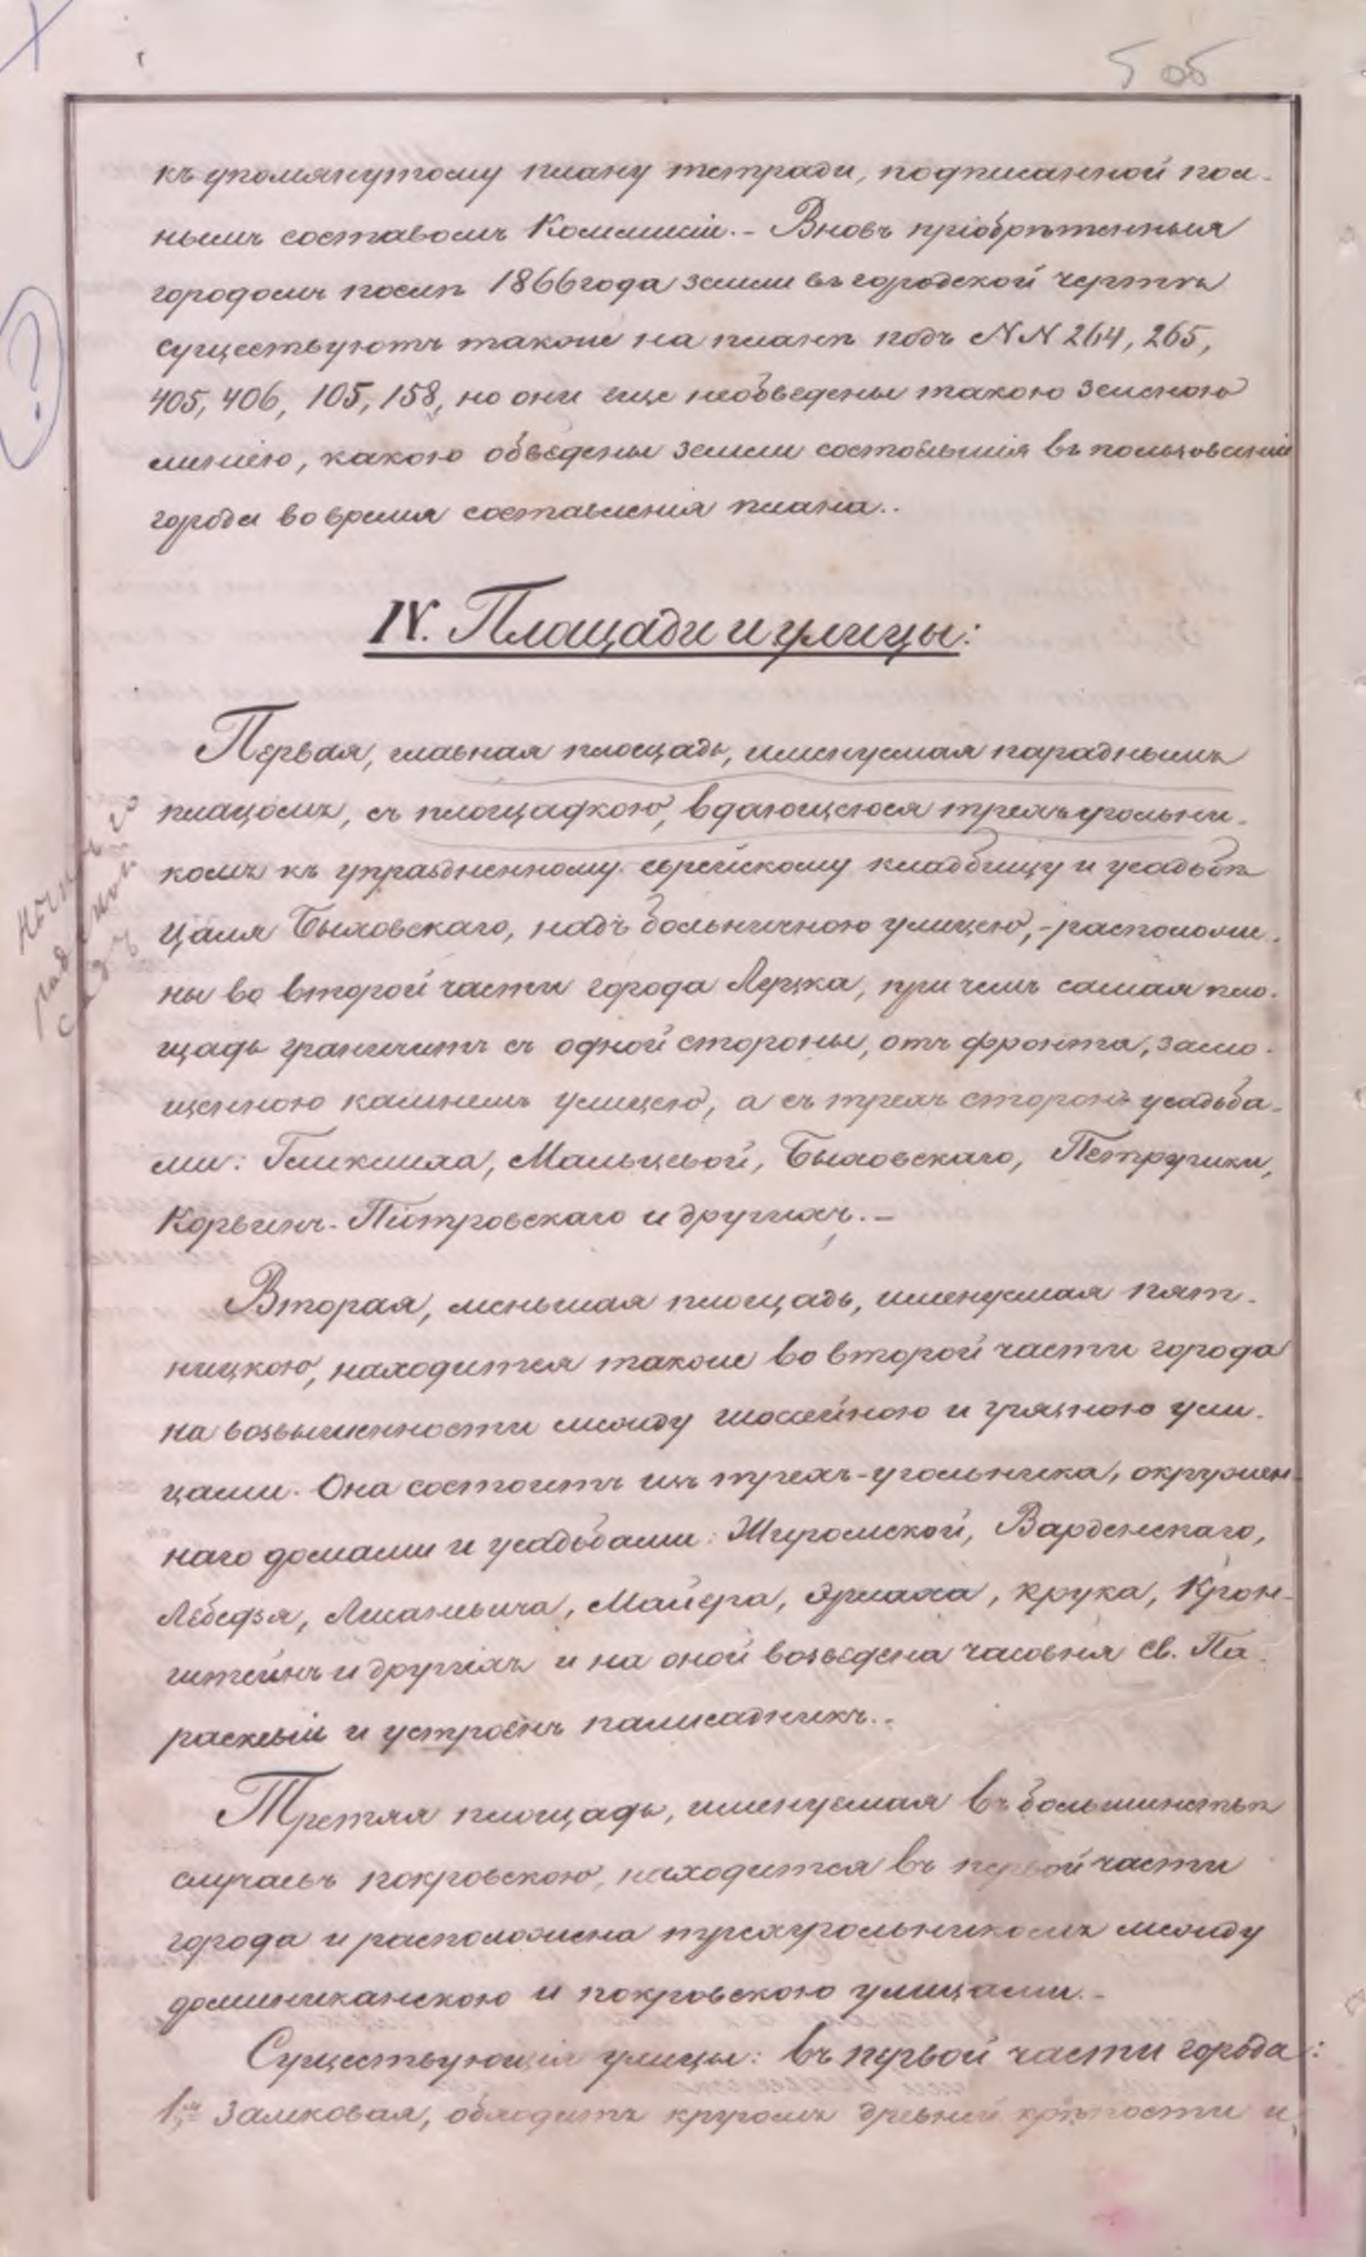 5 об
къ упомянутому плану тетради, подписанной пол-
нымъ составомъ Коммисіи. - Вновь пріобрѣтенныя
городомъ послѣ 1866 года земли въ городской чертѣ
существуютъ также на планѣ подъ NN 264, 265,
405, 406, 105, 158, но они еще необведены такою зеленою
линіею, какою обведены земли состоявшія въ пользованіи
города во время составленія плана. -
IV. Площади и улицы:
Первая, главная площадь, именуемая параднымъ
плацомъ, съ площадкою, вдающеюся трехъугольни-
комъ къ упраздненному еврейскому кладбищу и усадьбѣ
Цаля Быховскаго, надъ больничною улицею, - расположе-
ны во второй части города Луцка, при чемъ самая пло-
щадь граничитъ съ одной стороны, отъ фронта, замо-
щенною камнемъ улицею, а съ трехъ сторонъ усадьба-
ми: Гликлиха, Мальцевой, Быховскаго, Петрушки,
Корвинъ-Піотровскаго и другихъ. -
Вторая, меньшая площадь, именуемая пят-
ницкою, находится также во второй части города
на возвышенности между шоссейною и грязною ули-
цами. Она состоитъ изъ трехъ-угольника, окружен-
наго домами и усадьбами: Жиромской, Варденскаго,
Лебедзя, Майера, Ярмаха, Крука, Крон-
штейнъ и другихъ и на оной возведена часовня Св. Па-
раскевіи и устроенъ палисадникъ. -
Третяя площадь, именуемая въ большинствѣ
случаевъ покровскою, находится въ первой части
города и расположена трехугольникомъ между
доминиканскою и покровскою улицами. -
Существующія улицы: въ первой части города:
1я Замковая, обходитъ кругомъ древней крѣпости и